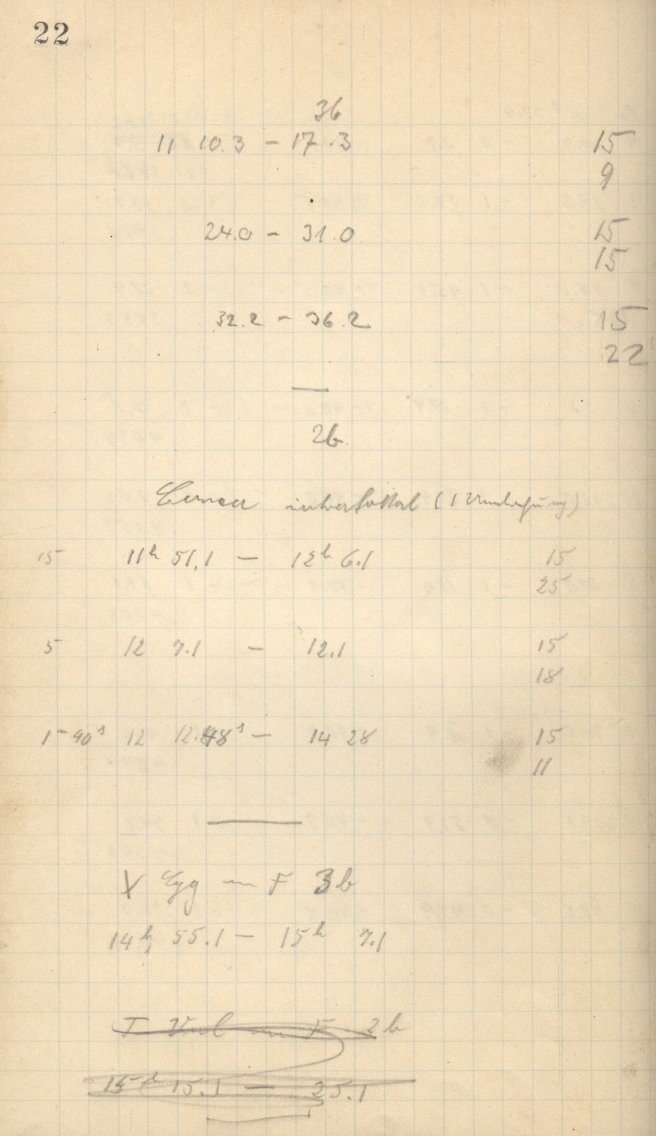 22
3b
11 10.3 – 17.3 15
9
24.0 – 31.0 15
15
32.2 – 36.2 15
22
2b.
(1
15 11h 51.1 – 12h 6.1 15
25
5 12 7.1 – 12.1 15
18
1m 40s 12 12.48s – 14 28 15
11
X Cyg F 3b
14h 55.1 – 15h 7.1
F 2b
15h 15.1 – 25.1